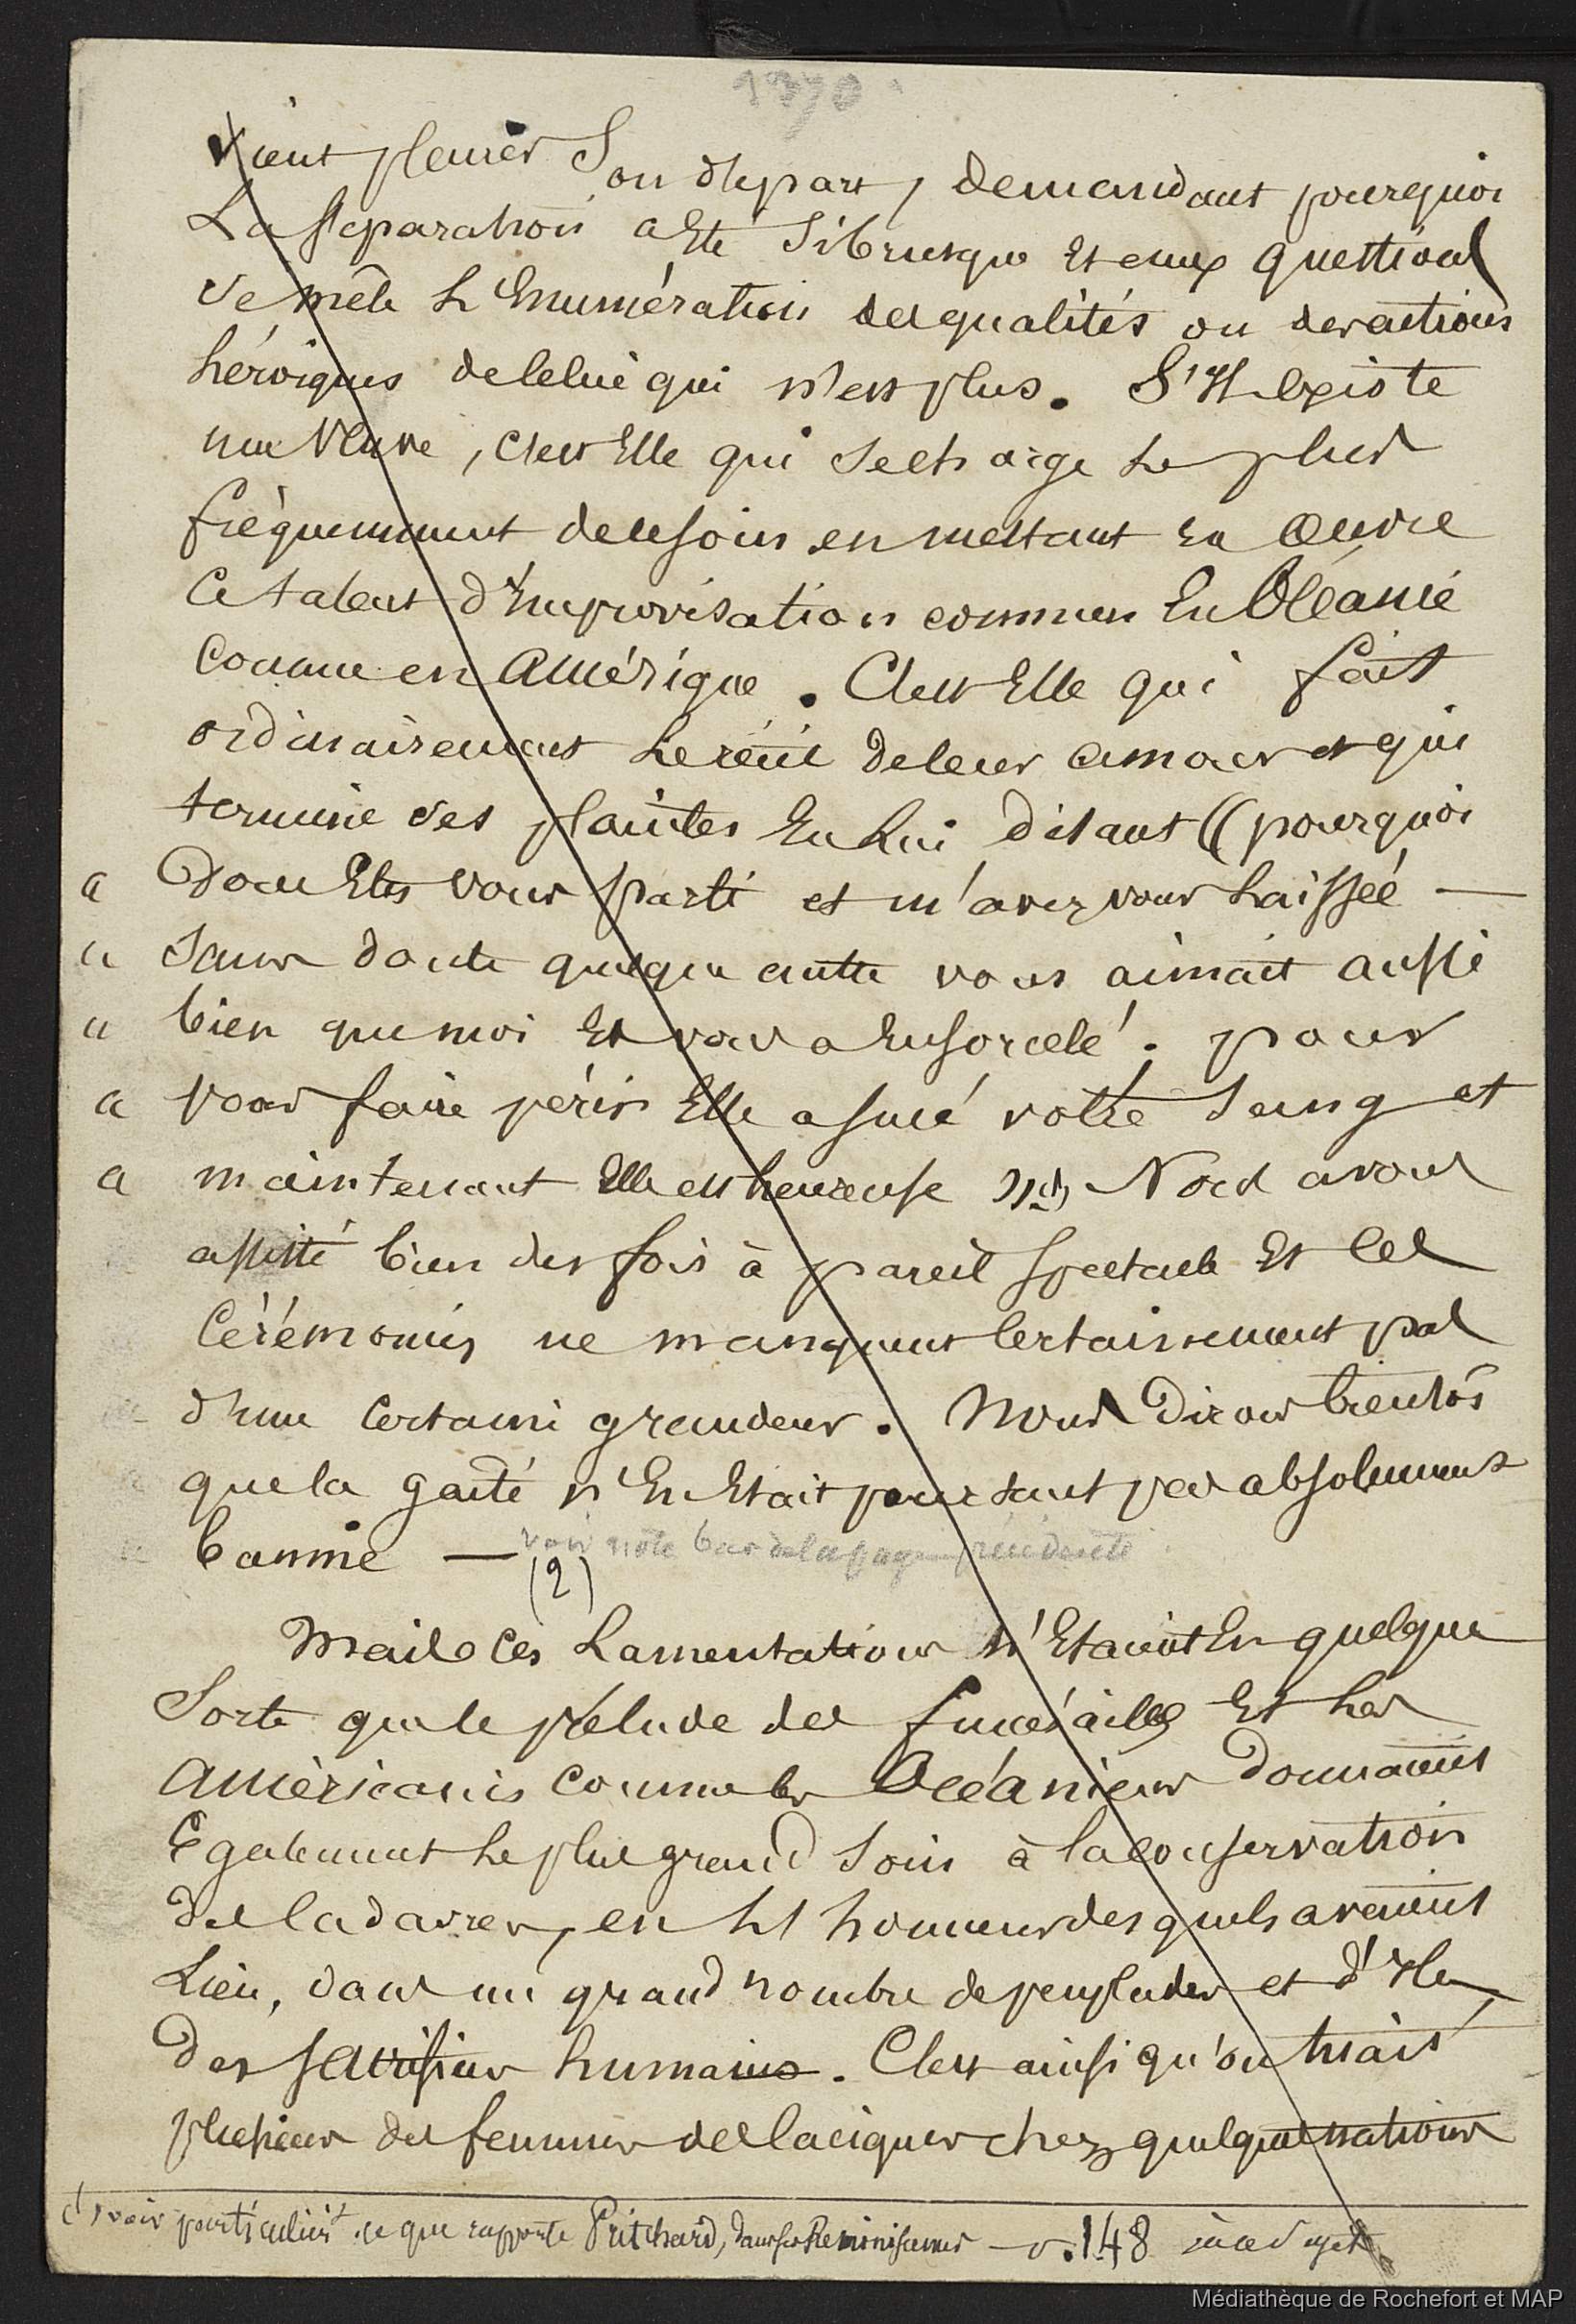 1370
vient pleurer son départ, demandant pourquoi
la séparation a été si brusque et aux questions
se mêle l'énumération des qualités ou des actions
héroiques de celui qui n'est plus. S'il existe
une veuve, c'est elle qui se charge le plus
fréquemment de ce soin en mettant en oeuvre
ce talent d'improvisation commun en Océanie
comme en Amérique. C'est elle qui fait
ordinairement le récit de leur amour et qui
termine ses plaintes en lui disant ((pourquoi
" donc êtes vous parti et m'avez vous laissée —
" sans doute quelque autre vous aimait aussi
" bien que moi et vous a ensorcelé. pour
" vous faire périr elle a sucé votre sang et
" maintenant elle est heureuse )) (1) Nous avons
assisté bien des fois à pareil spectacle et ces
cérémonies ne manquent certainement pas
d'une certaine grandeur. Nous dirons bientôt
que la gaité n'en était pourtant pas absolument
bannie — voir note bas de la page précédente
(2)
Mais ces lamentations n'étaient en quelque
sorte que le prélude des funérailles et les
Américains comme les Océaniens donnaient
également le plus grand soin à la conservation
des cadavres, en l'honneur desquels avaient
lieu, dans un grand nombre de peuplades et d'îles,
des sacrifices humains. C'est ainsi qu'on tuait
plusieurs des femmes des caciques chez quelques nations
(1) voir particulièrt. ce que rapporte Pritchard, dans ses Reminiscences — v. 148